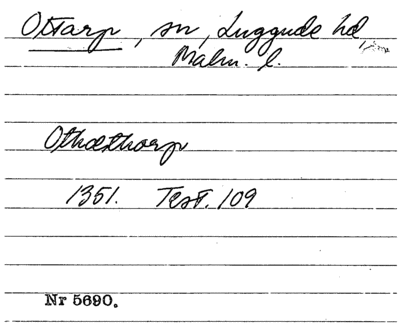 Ottarp, sn, Luggude hd,
Malm. l.
Othæthorp
1351. Test. 109
Nr 5690.